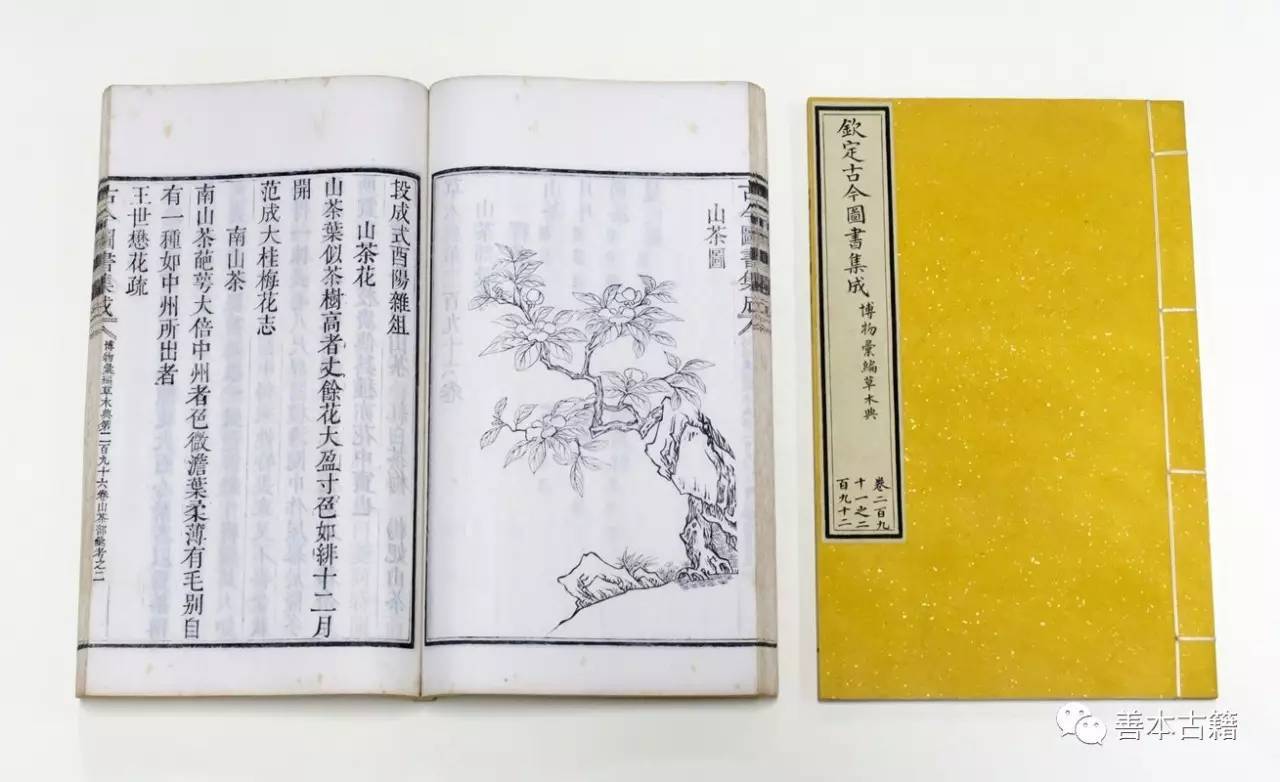 古今圖書集成
山茶圖
段成式酉陽雜俎
山茶花
山茶葉似茶樹高者丈餘花大盈寸色如緋十二月
開
范成大桂梅花志
南山茶
南山茶葩萼大倍中州者色微澹葉柔薄有毛别自
有一種如中州所出者
王世懋花疏
古今圖書集成
博物彙編草木典第二百九十六卷山茶部彙考之二
欽定古今圖書集成 博物彙編草木典
卷二百九
十一之二
百九十二
善本古籍